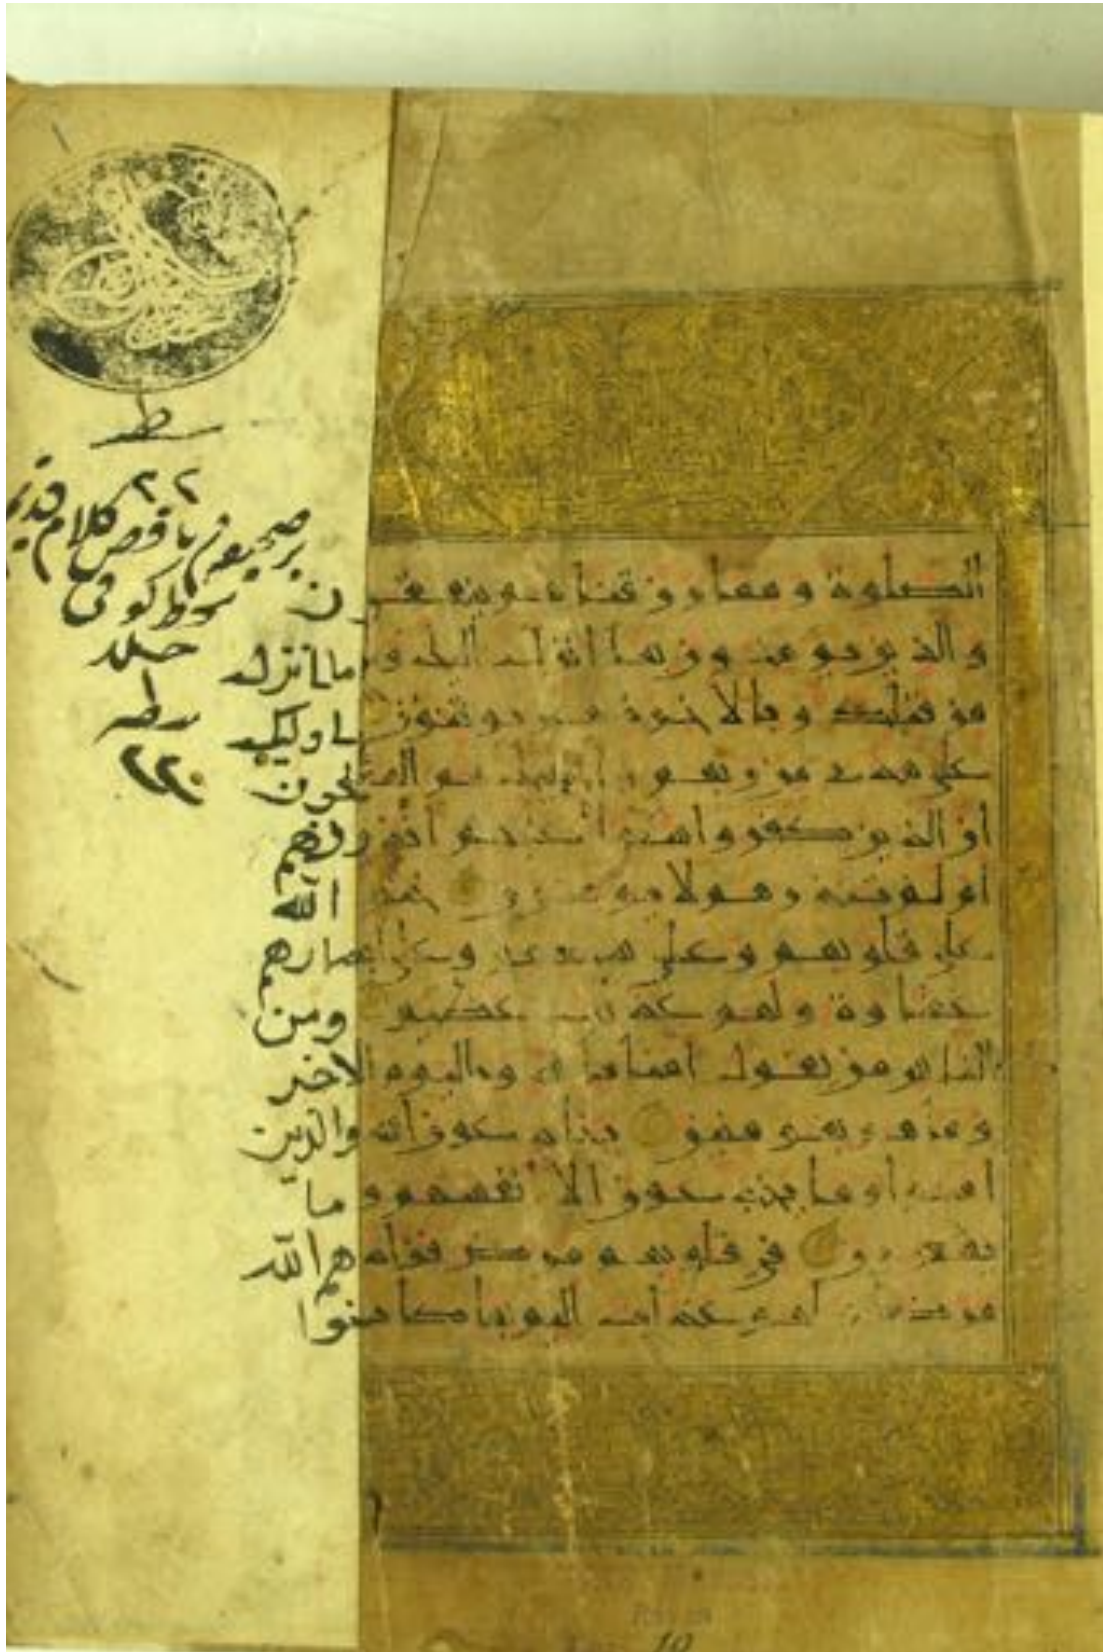 ٢٢
ناقص كلام قديم
خط كوفى
جلد
٢٢٠
الصلوة ومما رزقناهم ينفقون
والذين يومنون بما انزل اليك وما انزل
من قبلك وبالاخرة هم يوقنون اوليك
على هدى من ربهم واوليك هم المفلحون
ان الذين كفروا سوا عليهم انذرتهم
ام لم تنذرهم لا يومنون ختم الله
على قلوبهم وعلى سمعهم وعلى ابصارهم
غشاوة ولهم عذاب عظيم ومن
الناس من يقول امنا بالله وباليوم الاخر
وما هم بمومنين يخادعون الله والذين
امنوا وما يخدعون الا انفسهم وما
يشعرون في قلوبهم مرض فزادهم الله
مرضا ولهم عذاب اليم بما كانوا
10